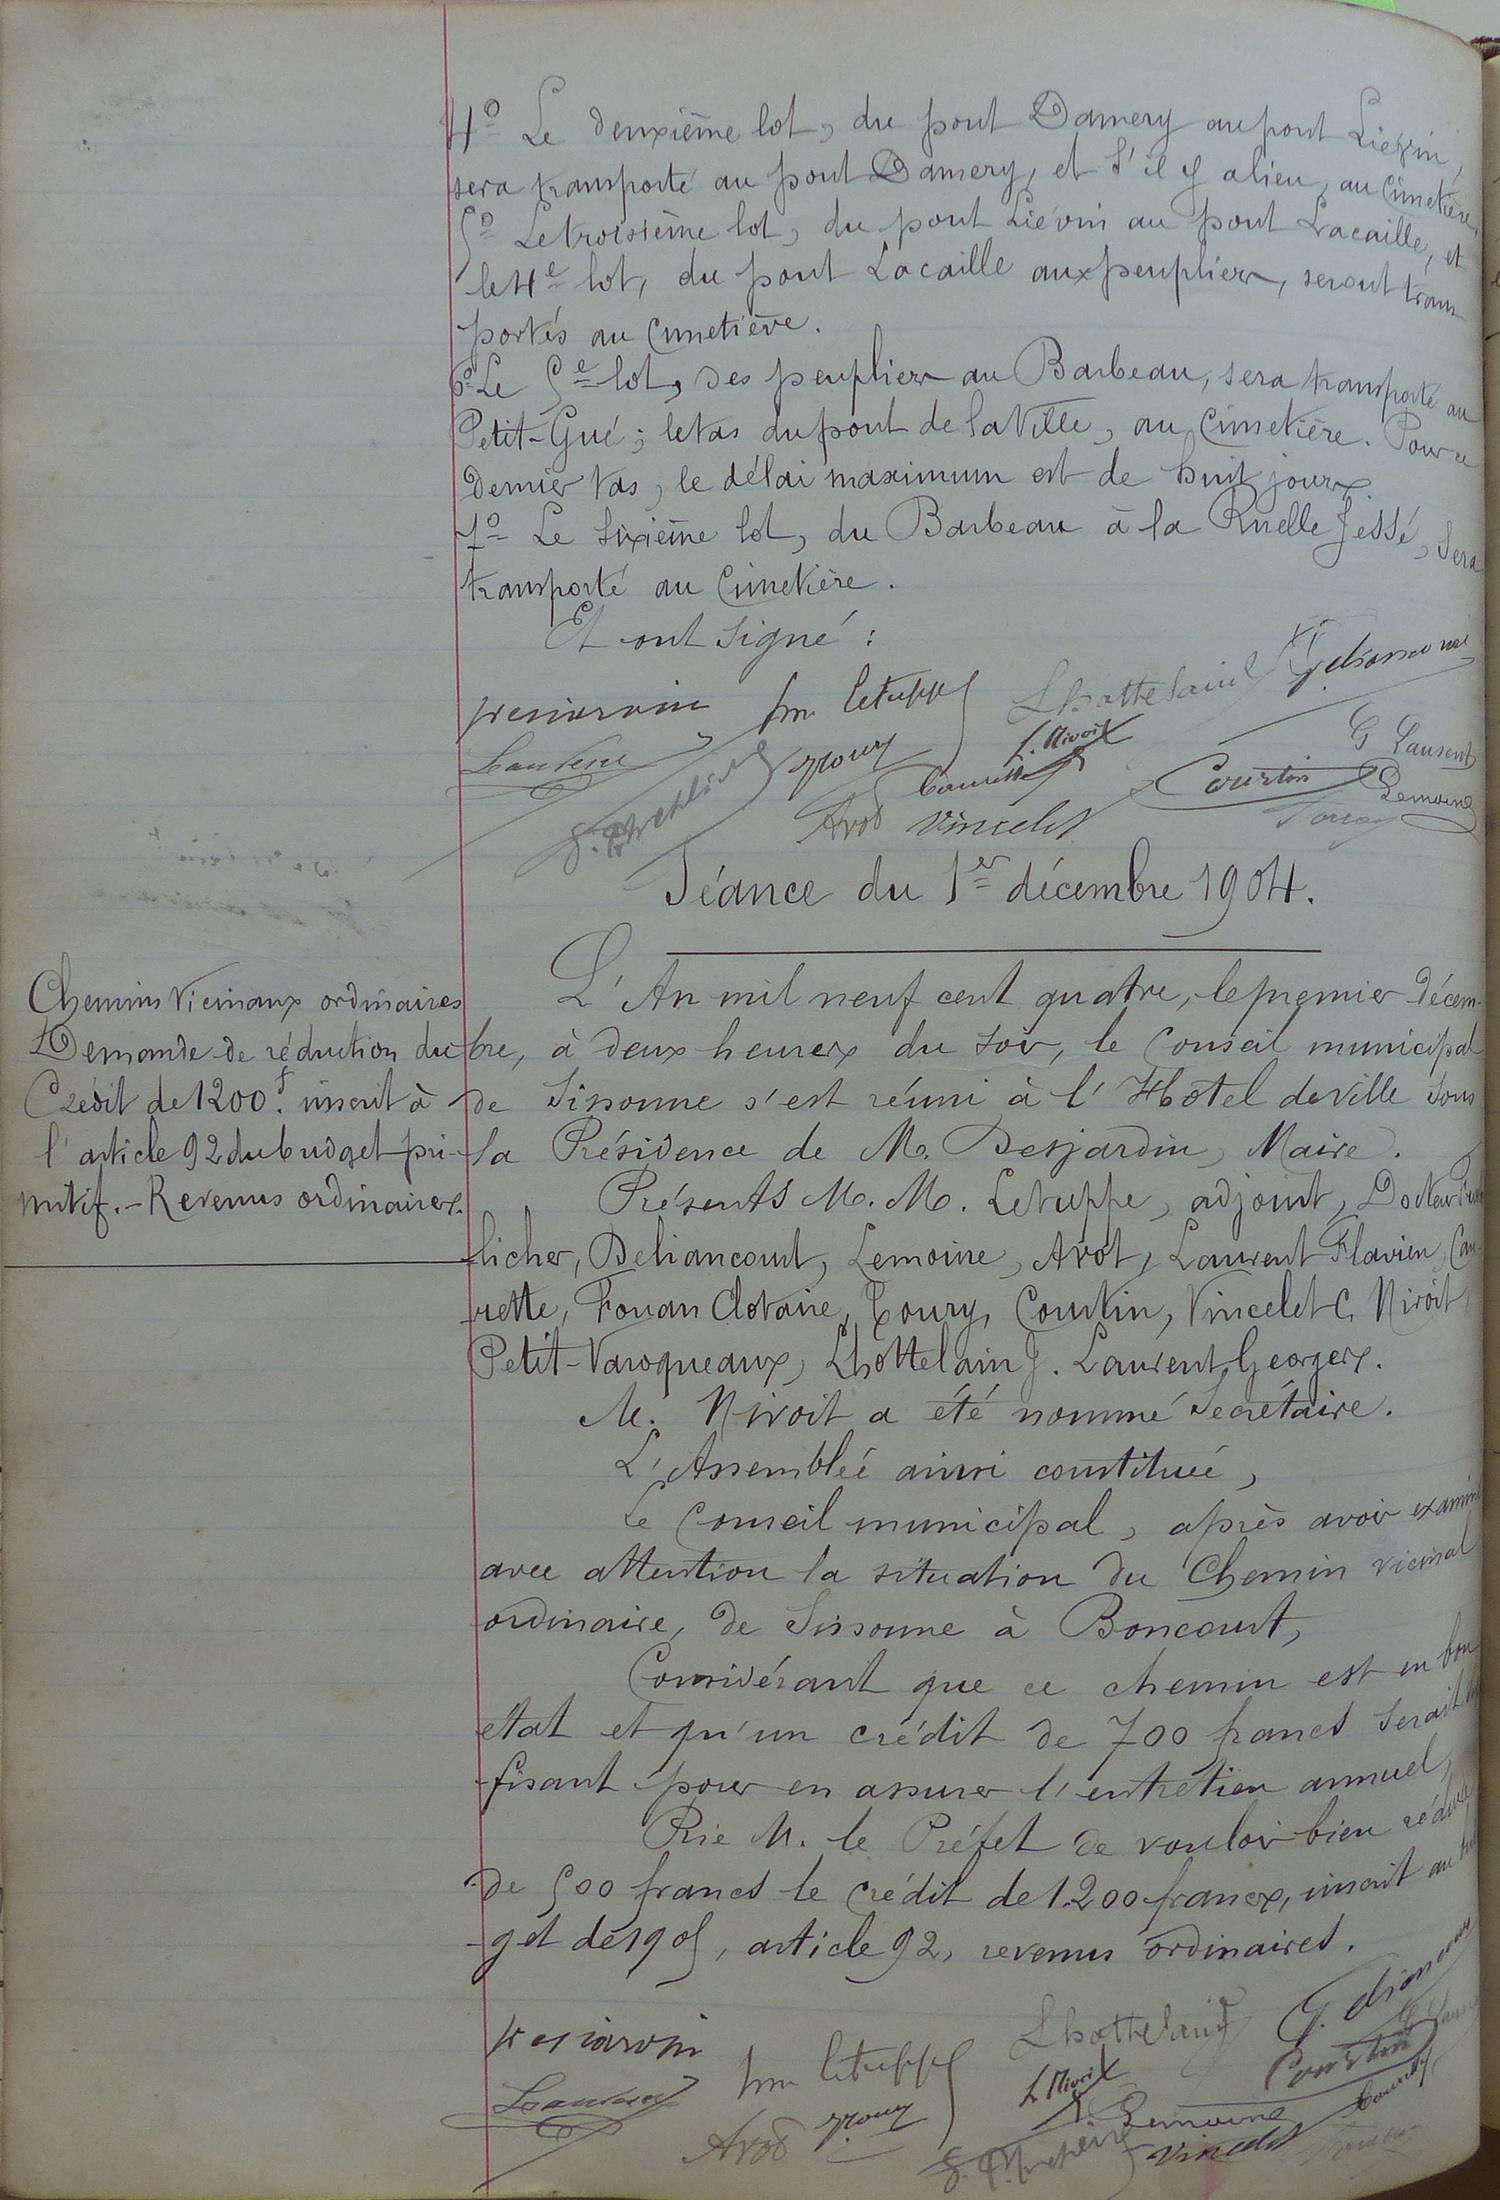 4° Le deuxième lot, du pont Damery au pont Liévin,
sera transporté au pont Damery, et s'il y a lieu, au Cimetière,
5° Le troisième lot, du pont Liévin au pont Lacaille, et
le 4e lot, du pont Lacaille aux peupliers, seront trans
portés au Cimetière.
6° Le 5e lot, des peupliers au Barbeau, sera transporté au
Petit-Gué; le tas du pont de la Ville, au Cimetière. Pour ce
dernier tas, le délai maximum est de huit jours.
7° Le sixième lot, du Barbeau à la Ruelle Jessé, sera
transporté au Cimetière.
Et ont signé :
Desjardin Letuppe Lhottelain G. Deliancourt
Laurent Toury L. Niroit G Laurent
Caurette Courtin Lemoine
Avot Vincelet Fouan
Séance du 1er décembre 1904.
Chemins Vicinaux ordinaires
Demande de réduction du
Crédit de 1200f. inscrit à
l'article 92 du budget pri-
mitif. - Revenus ordinaires.
L'An mil neuf cent quatre, le premier Décem-
bre, à deux heures du soir, le Conseil municipal
de Sissonne s'est réuni à l'Hôtel de Ville sous
la Présidence de M. Desjardin, Maire.
Présents M.M. Letuppe, adjoint, Docteur
licher, Deliancourt, Lemoine, Avot, Laurent Flavien, Cau-
rette, Fouan Clotaire, Toury, Courtin, Vincelet C, Niroit,
Petit-Varoqueaux, Lhottelain J. Laurent Georges.
M. Niroit a été nommé Secrétaire.
L'Assemblée ainsi constituée,
Le Conseil municipal, après avoir examiné
avec attention la situation du Chemin vicinal
ordinaire, de Sissonne à Boncourt,
Considérant que ce chemin est en bon
état et qu'un crédit de 700 francs serait
fisant pour en assurer l'entretien annuel,
Prie M. le Préfet de vouloir bien réduire
de 500 francs le crédit de 1.200 francs, inscrit au bud
get de 1905, article 92, revenus ordinaires.
Desjardin Letuppe Lhottelain G. Deliancourt
Laurent L. Niroit Courtin G Laurent
Avot Toury Lemoine Caurette
Vincelet Fouan